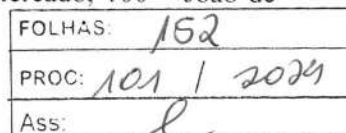 FOLHAS: 152
PROC: 101 / 2024
Ass: